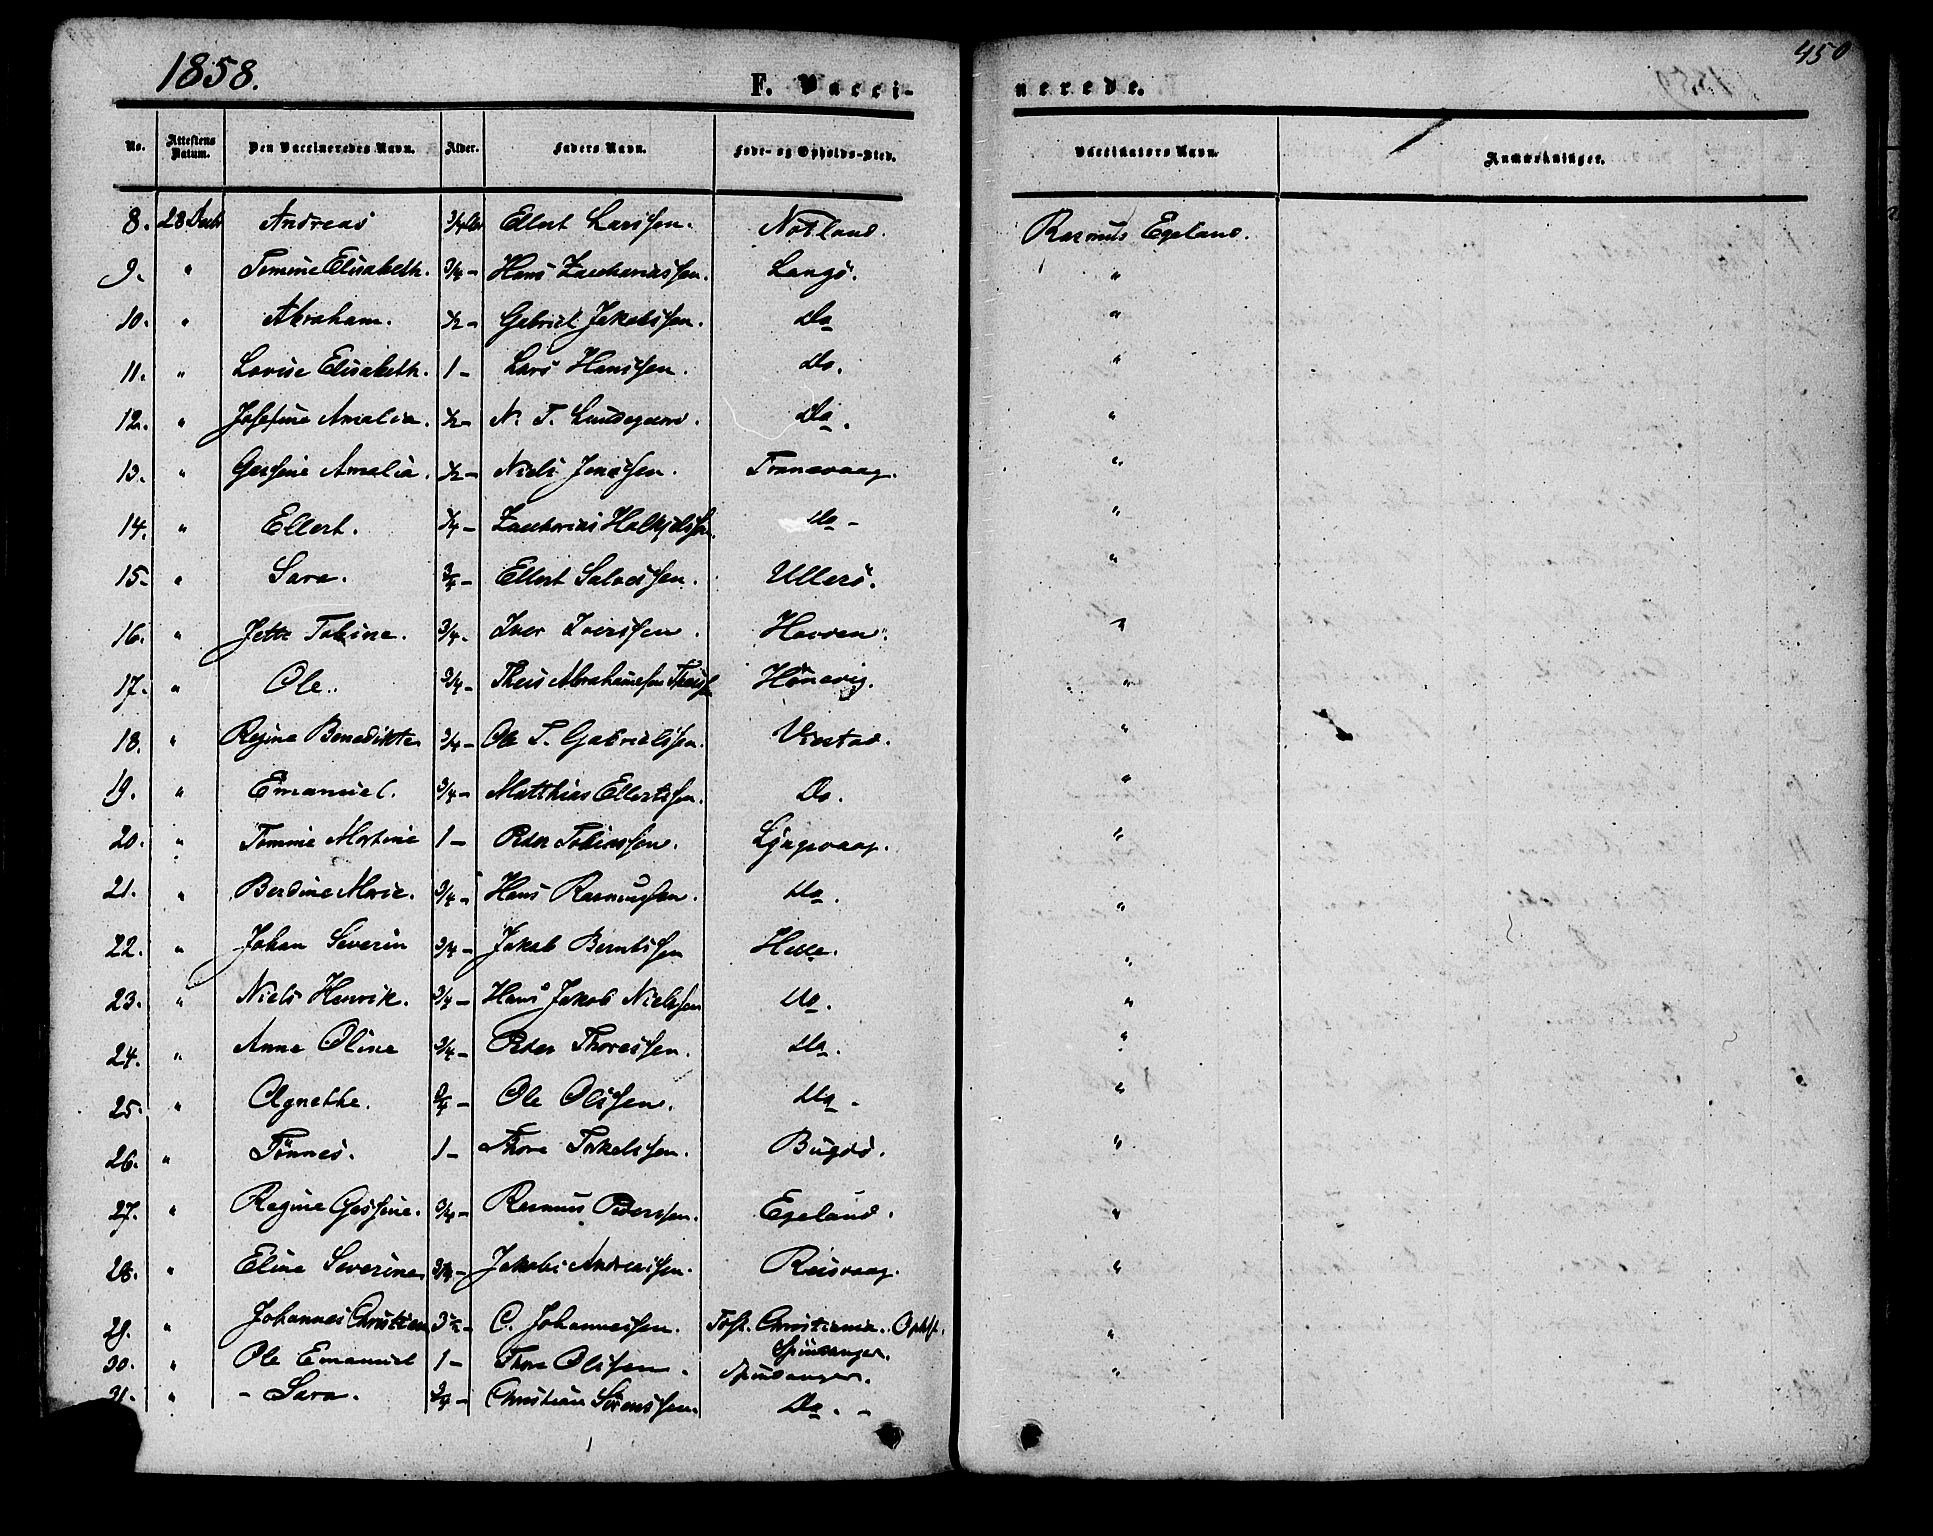 1858.
450
F. Vacci-
nerede.
No. Attestens Datum. Den Vaccineredes Navn. Alder. Faders Navn. Føde- og Opholds-Sted. Vaccinators Navn. Anmærkninger.
8. 28 Andreas 3/4 Ellert Larssen. Notland. Rasmus Egeland.
9. " Tomine Elisabeth. 3/4 - Hans Zachariassen. Langö. "
10. " Abraham. 1/2 - Gabriel Jakobssen. Do "
11. " Lovise Elisabeth. 1 - Lars Hanssen. Do. "
12. " Josefine Amalia. 1/2 - N. T. Lundegaard. Do. "
13. " Gessine Amalia. 1/2 - Niels Jonassen. Tranevaag. "
14. " Ellert. 3/4 - Zacharias Do - "
15 - " Sara. 3/4 - Ellert Salvessen. Ullerö. "
16. " Jette Tobine. 3/4 - Iver Iverssen. Havsen. "
17. " Ole. 3/4 - Theis Abrahamssen Hönevig. "
18. " Regine Benedikte 3/4 - Ole T. Gabrielssen. Vrestad. "
19. " Emanuel. 3/4 - Matthias Ellertssen. Do. "
20. " Tomine Martine 1 - Peder Tobiassen. Lyngevaag. "
21. " Berdine Marie. 3/4 - Hans Rasmussen. Do. "
22. " Johan Severin 3/4 - Jakob Berntssen Helle. "
23. " Niels Henrik. 3/4 - Hans Jakob Nielssen Do. "
24. " Anne Oline 3/4 - Peder Thorssen. Do. "
25. " Agnethe. 3/4 - Ole Olssen. Do - "
26. " Tönnes. 1 - Thore Torkelssen. Bugdö. "
27. " Regine Gessine. 3/4 - Rasmus Pederssen. Egeland. "
28. " Eline Severine 3/4 - Jakob Andreassen. Reisvaag. "
29. " Johannes Christian 3 1/2 - C. Johannessen. Christiania. "
Spindsanger.
30. " Ole Emanuel 1 - Thore Olssen. Spindsanger. "
31. " - Sara. 3/4 - Christian Sörenssen. Do. -